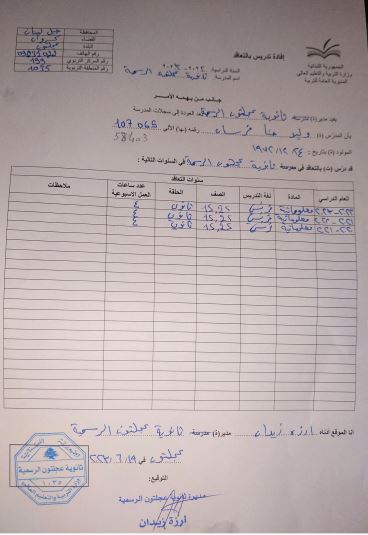 الجمهورية اللبنانية
وزارة التربية والتعليم العالي
المديرية العامة للتربية
إفادة تدريس بالتعاقد
السنة الدراسية: ٢٠٢٢-٢٠٢٣
اسم المدرسة: ثانوية عجلتون الرسمية
المحافظة جبل لبنان
القضاء كسروان
البلدة عجلتون
رقم الهاتف
رقم المركز التربوي 199
رقم المنطقة التربوية 1035
جانب من يهمه الأمر
يفيد مدير (ة) مدرسة ثانوية عجلتون الرسمية بعد العودة إلى سجلات المدرسة
بأن المدرس (ة) وليد حنا رقمه (ها) الآلي 107065
58403
المولود (ة) بتاريخ: ٢٤/١٢/١٩٧٢
قد درس (ت) بالتعاقد في مدرسة ثانوية عجلتون الرسمية في السنوات التالية:
سنوات التعاقد
العام الدراسي المادة لغة التدريس الصف الحلقة عدد ساعات العمل الاسبوعية ملاحظات
معلوماتية ثانوي ٤
معلوماتية ثانوي ٤
معلوماتية ثانوي ٤
أنا الموقع أدناه ارزه زيدان مدير(ة) مدرسة ثانوية عجلتون الرسمية
عجلتون في ١٩/٦/٢٠٢٣
التوقيع:
مديرة ثانوية عجلتون الرسمية
أرزة زيدان
ثانوية عجلتون الرسمية
١٠٣٥